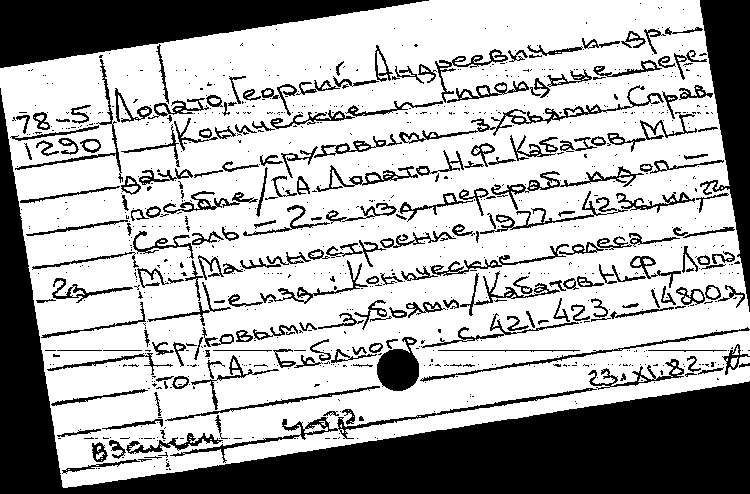 78-5 Лопато, Георгий Андреевич и др.
1290 Конические и гипоидные пере-
дачи с круговыми зубьями : Справ.
пособие / Г.А. Лопато, Н.Ф. Кабатов, М.Г.
Сегаль. – 2-е изд., перераб. и доп. –
2э М. : Машиностроение, 1977. – 423 с., ил.; 22см
1-е изд. : Конические колеса с
круговыми зубьями / Кабатов Н.Ф., Лопа-
то Г.А. Библиогр. : с. 421-423. – 14800э
23.XI.82.
взамен утр.